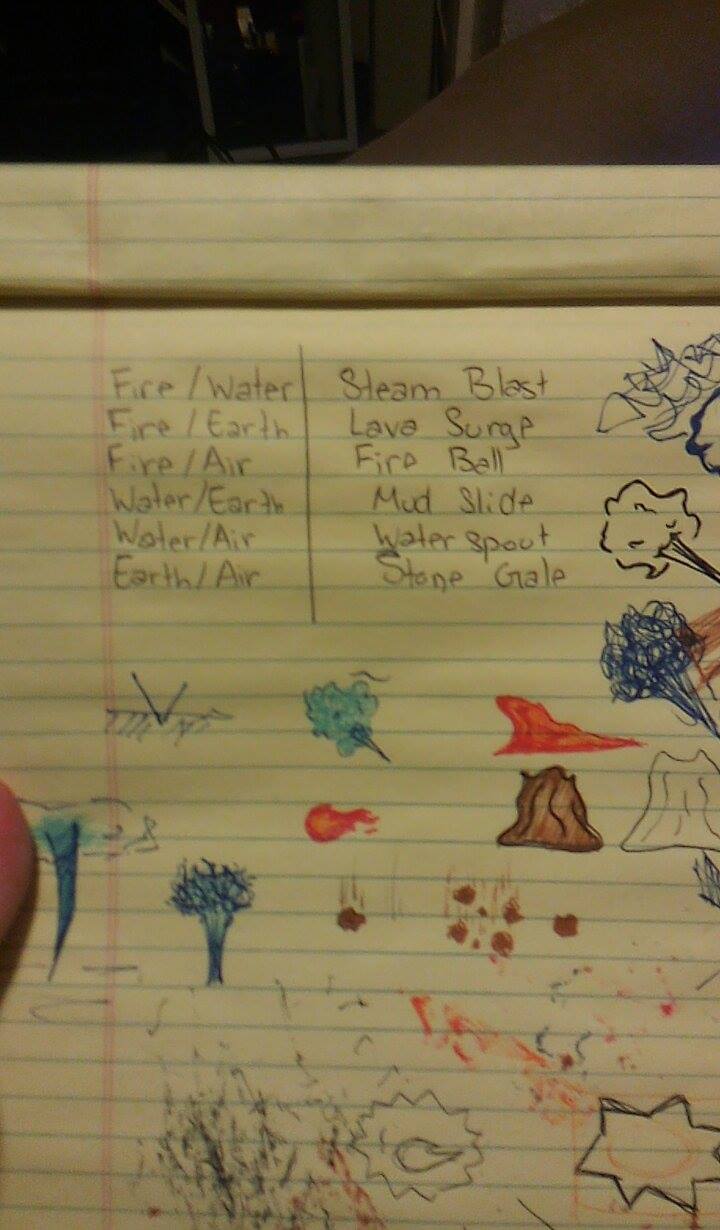 Fire/Water Steam Blast
Fire/Earth Lava Surge
Fire/Air Fire Ball
Water/Earth Mud Slide
Water/Air Water spout
Earth/Air Stone Gale